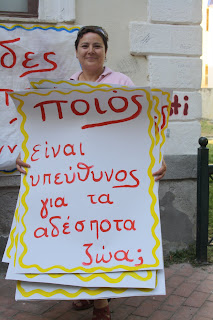 δες
ποιός
είναι
υπεύθυνος
για τα
αδέσποτα
ζώα;